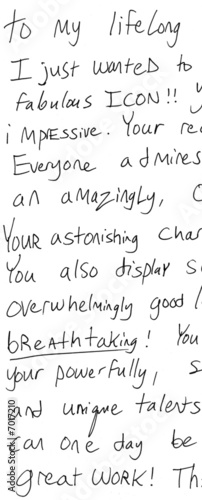 to my lifelong
I just wanted to
fabulous ICON!!
impressive. Your
Everyone admires
an amazingly,
Your astonishing
You also display
overwhelmingly good
breathtaking! You
your powerfully,
and unique talents
can one day be
great work!
Adobe Stock | #7017210